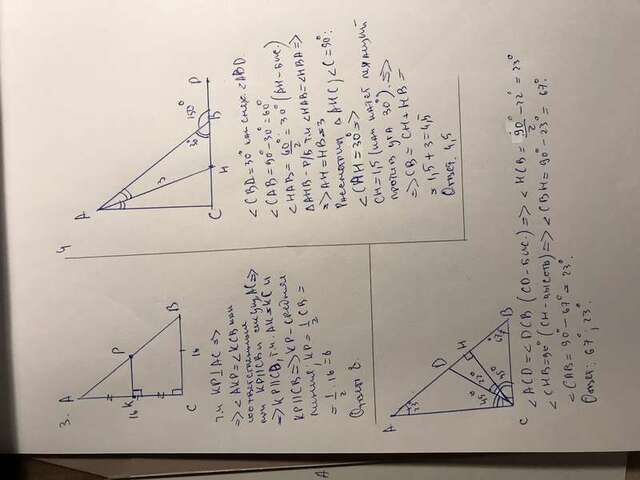 3.
A
P
K
16
C
16
B
т.к KP⊥AC =>
=> <AKP = <KCB как
соответственные
при KP||CB и секущ AC =>
=> KP||CB, т.к. AK=KC и
KP||CB => KP - средняя
линия, KP = 1/2 CB =
= 1/2 · 16 = 8
Ответ 8.
4
A
3
30°
150°
B
D
C
H
<CBA = 30° как смеж. <ABD.
<CAB = 90° - 30° = 60°
<HAB = 60°/2 = 30° (AH - бис.)
ΔAHB - р/б т.к <HAB = <HBA =>
=> AH = HB = 3
Рассмотрим ΔAHC, <C = 90°:
<CAH = 30° =>
CH = 1,5 (как катет лежащий
против угла 30°). =>
=> CB = CH + HB =
= 1,5 + 3 = 4,5
Ответ 4,5
A
23°
D
H
67°
B
45°
22°
45°
C
<ACD = <DCB (CD - бис.) => <HCB = 90°/2 - 22° = 23°
<CHB = 90° (CH - высота) => <CBH = 90° - 23° = 67°
<CAB = 90° - 67° = 23°.
Ответ: 67°, 23°.
A